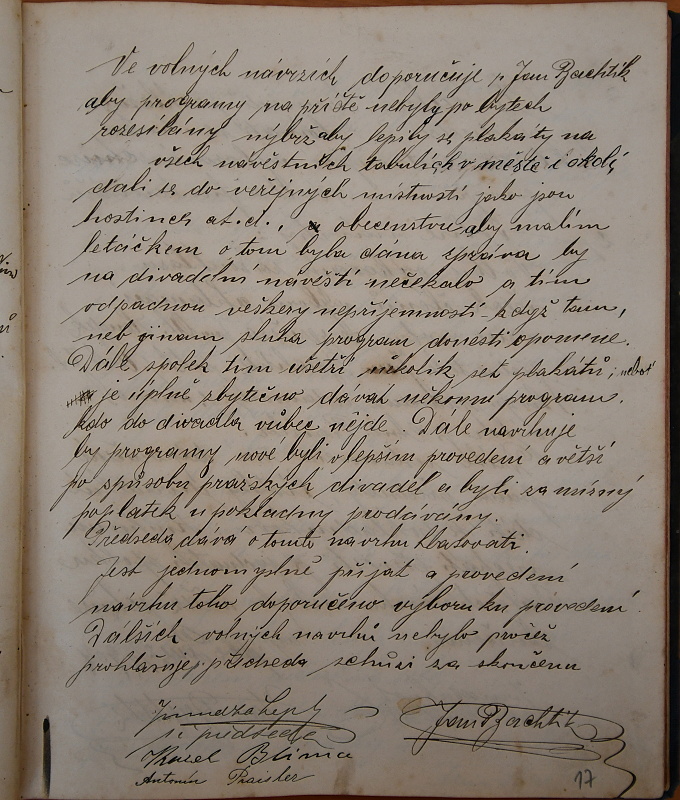 Ve volných návrzích doporučuje p Jan Bachtík
aby programy na příště nebyly po bytech
rozesílány nýbrž aby lepily se plakáty na
všech navěstních tabulích v městě i okolí,
dali se do veřejných místností jako jsou
hostince at.d., obecenstvu aby malím
letáčkem o tom byla dána zpráva by
na divadelní návěští nečekalo a tím
odpadnou veškery nepříjemnosti když tam,
neb jinam sluha program donésti opomene.
Dále spolek tím ušetří několik set plakátů, neboť
je úplně zbytečno dávat někomu program,
kdo do divadla vůbec nejde. Dále navrhuje
by programy nové byli v lepším provedení a větší
po spůsobu pražských divadel a byli za mírný
poplatek u pokladny prodávány.
Předseda dává o tomto návrhu hlasovati.
Jest jednomyslně přijat a provedení
návrhu toho doporučeno výboru ku provedení.
Dálších volných navrhů nebylo pročež
prohlašuje předseda schůzi za skončenu
předseda
Jan Bachtík
Karel Blíma
Antonín Praisler
17